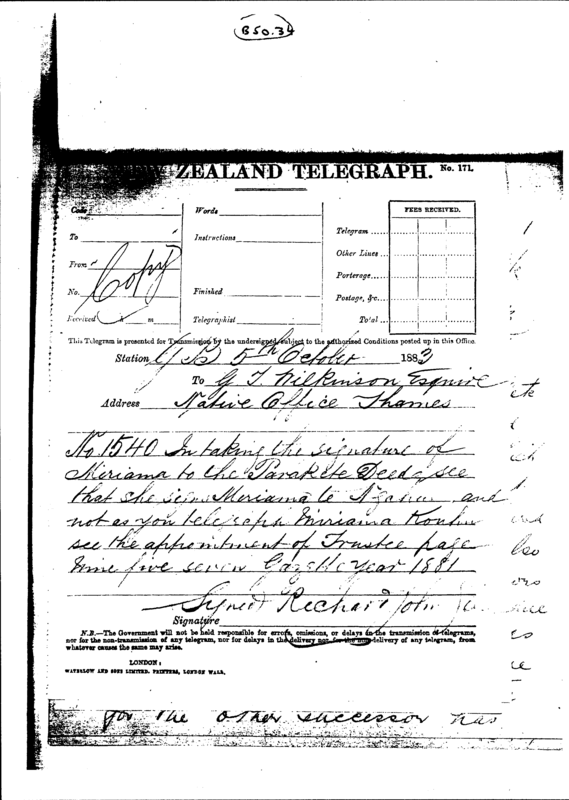 B50.34
ZEALAND TELEGRAPH. No. 171.
Code
Words
FEES RECEIVED.
To
Instructions
Telegram
Other Lines
From
Copy
Porterage
No.
Finished
Postage, &c.
Received h m
Telegraphist
Total
This Telegram is presented for Transmission by the undersigned subject to the authorised Conditions posted up in this Office.
Station 5th October 1883
To G T Wilkinson Esquire
Address Native Office Thames
No. 1540 In taking the signature of
Meriama to the Deeds see
that she signs Meriama te and
not as you telegraph Miriama
see the appointment of Trustee page
nine five seven Gazette Year 1881
Signed Richard John
Signature
N.B.—The Government will not be held responsible for errors, omissions, or delays in the transmission of telegrams,
nor for the non-transmission of any telegram, nor for delays in the delivery nor for the non-delivery of any telegram, from
whatever causes the same may arise.
LONDON:
WATERLOW AND SONS LIMITED. PRINTERS, LONDON WALL.
for the other successor has